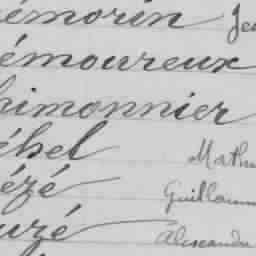 émorin Jea
émoureux
himonnier
ébel Mathu
ézé Guillaum
uzé Alexandre